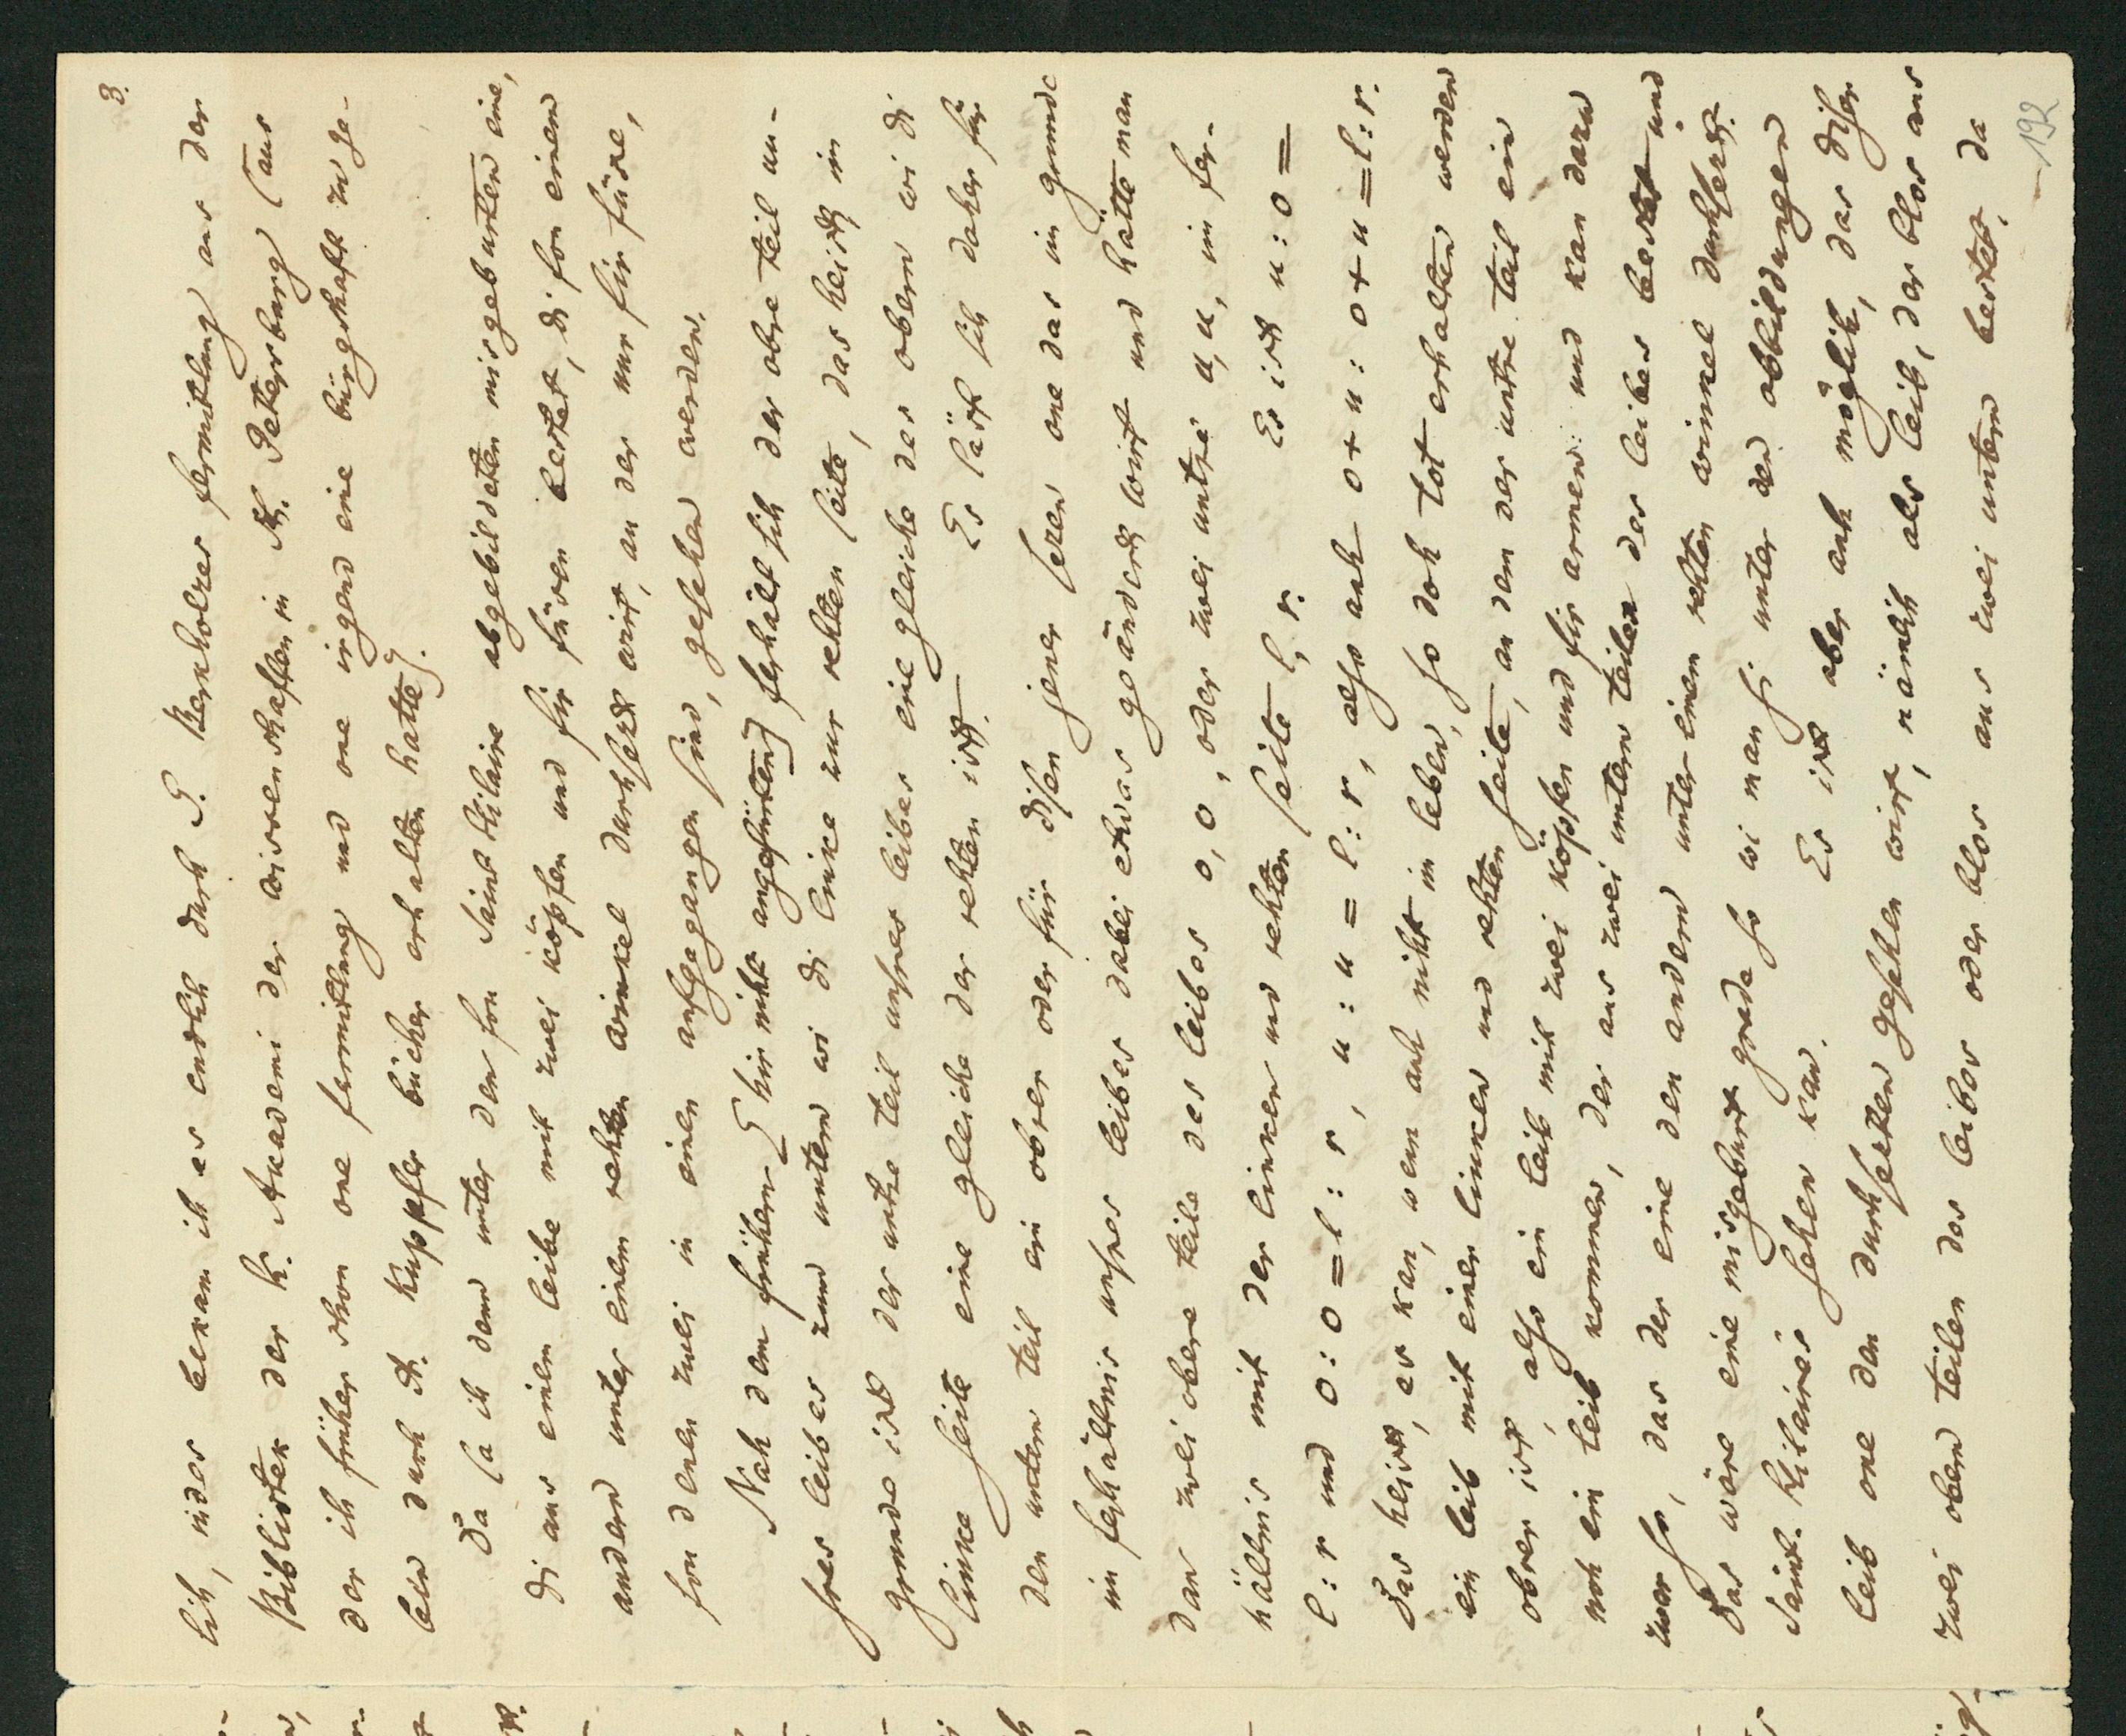 3.
lich, indes bekam ich es endlich durch S. Berkholzes fermitlung aus der
Bibliotek der k. Akademi der wissenschaften in St. Petersburg (aus
der ich früher schon one fermitlung und one irgend eine bürgschaft zu ge-
ben durch A. Kuppfer bücher erhalten hatte).
Da sa ich denn unter den fon Saint Hilaire abgebildeten misgeburten eine,
di aus einem leibe mit zwei köpfen und fir füsen bestet, di fon einem
andern unter einem rechten winkel durchsezt wirt, an der nur fir füse,
fon denen zwei in einen aufgegangen sind, gesehen werden.
Nach dem frühern [hir nicht angefürten] ferhält sich der obre teil un-
sres leibes zum untern wi di linke zur rechten seite, das heist im
grunde ist der untre teil unsres leibes eine gleiche des obern wi di
linke seite eine gleiche der rechten ist. Es läst sich daher für
den untern teil ein obrer oder für disen jener sezen one das im grunde
im ferhältnis unsres leibes dabei etwas geändert wirt und hätte man
dan zwei obere teile des leibes o, o, oder zwei untre u, u, im fer-
hältnis mit der linken und rechten seite l, r. Es ist u : o =
l : r und o : o = l : r, u : u = l : r, also auch o + u : o + u = l : r.
Das heist, es kan, wen auch nicht im leben, so doch tot erhalten werden
ein leib mit einer linken und rechten seite, an dem der untre teil ein
obrer ist, also ein leib mit zwei köpfen und fir armen und kan dazu
noch ein leib kommen, der aus zwei untern teilen des leibes bestet und
zwar so, das der eine den andern unter einem rechten winkel durchsezt.
Das wäre eine misgeburt grade so wi man si unter den abbildungen
Saint Hilaires sehen kan. Es ist aber auch möglich, das diser
leib one den durchsezten gesehen wirt, nämlich als leib, der blos aus
zwei obern teilen des leibes oder blos aus zwei untern bestet, da
192